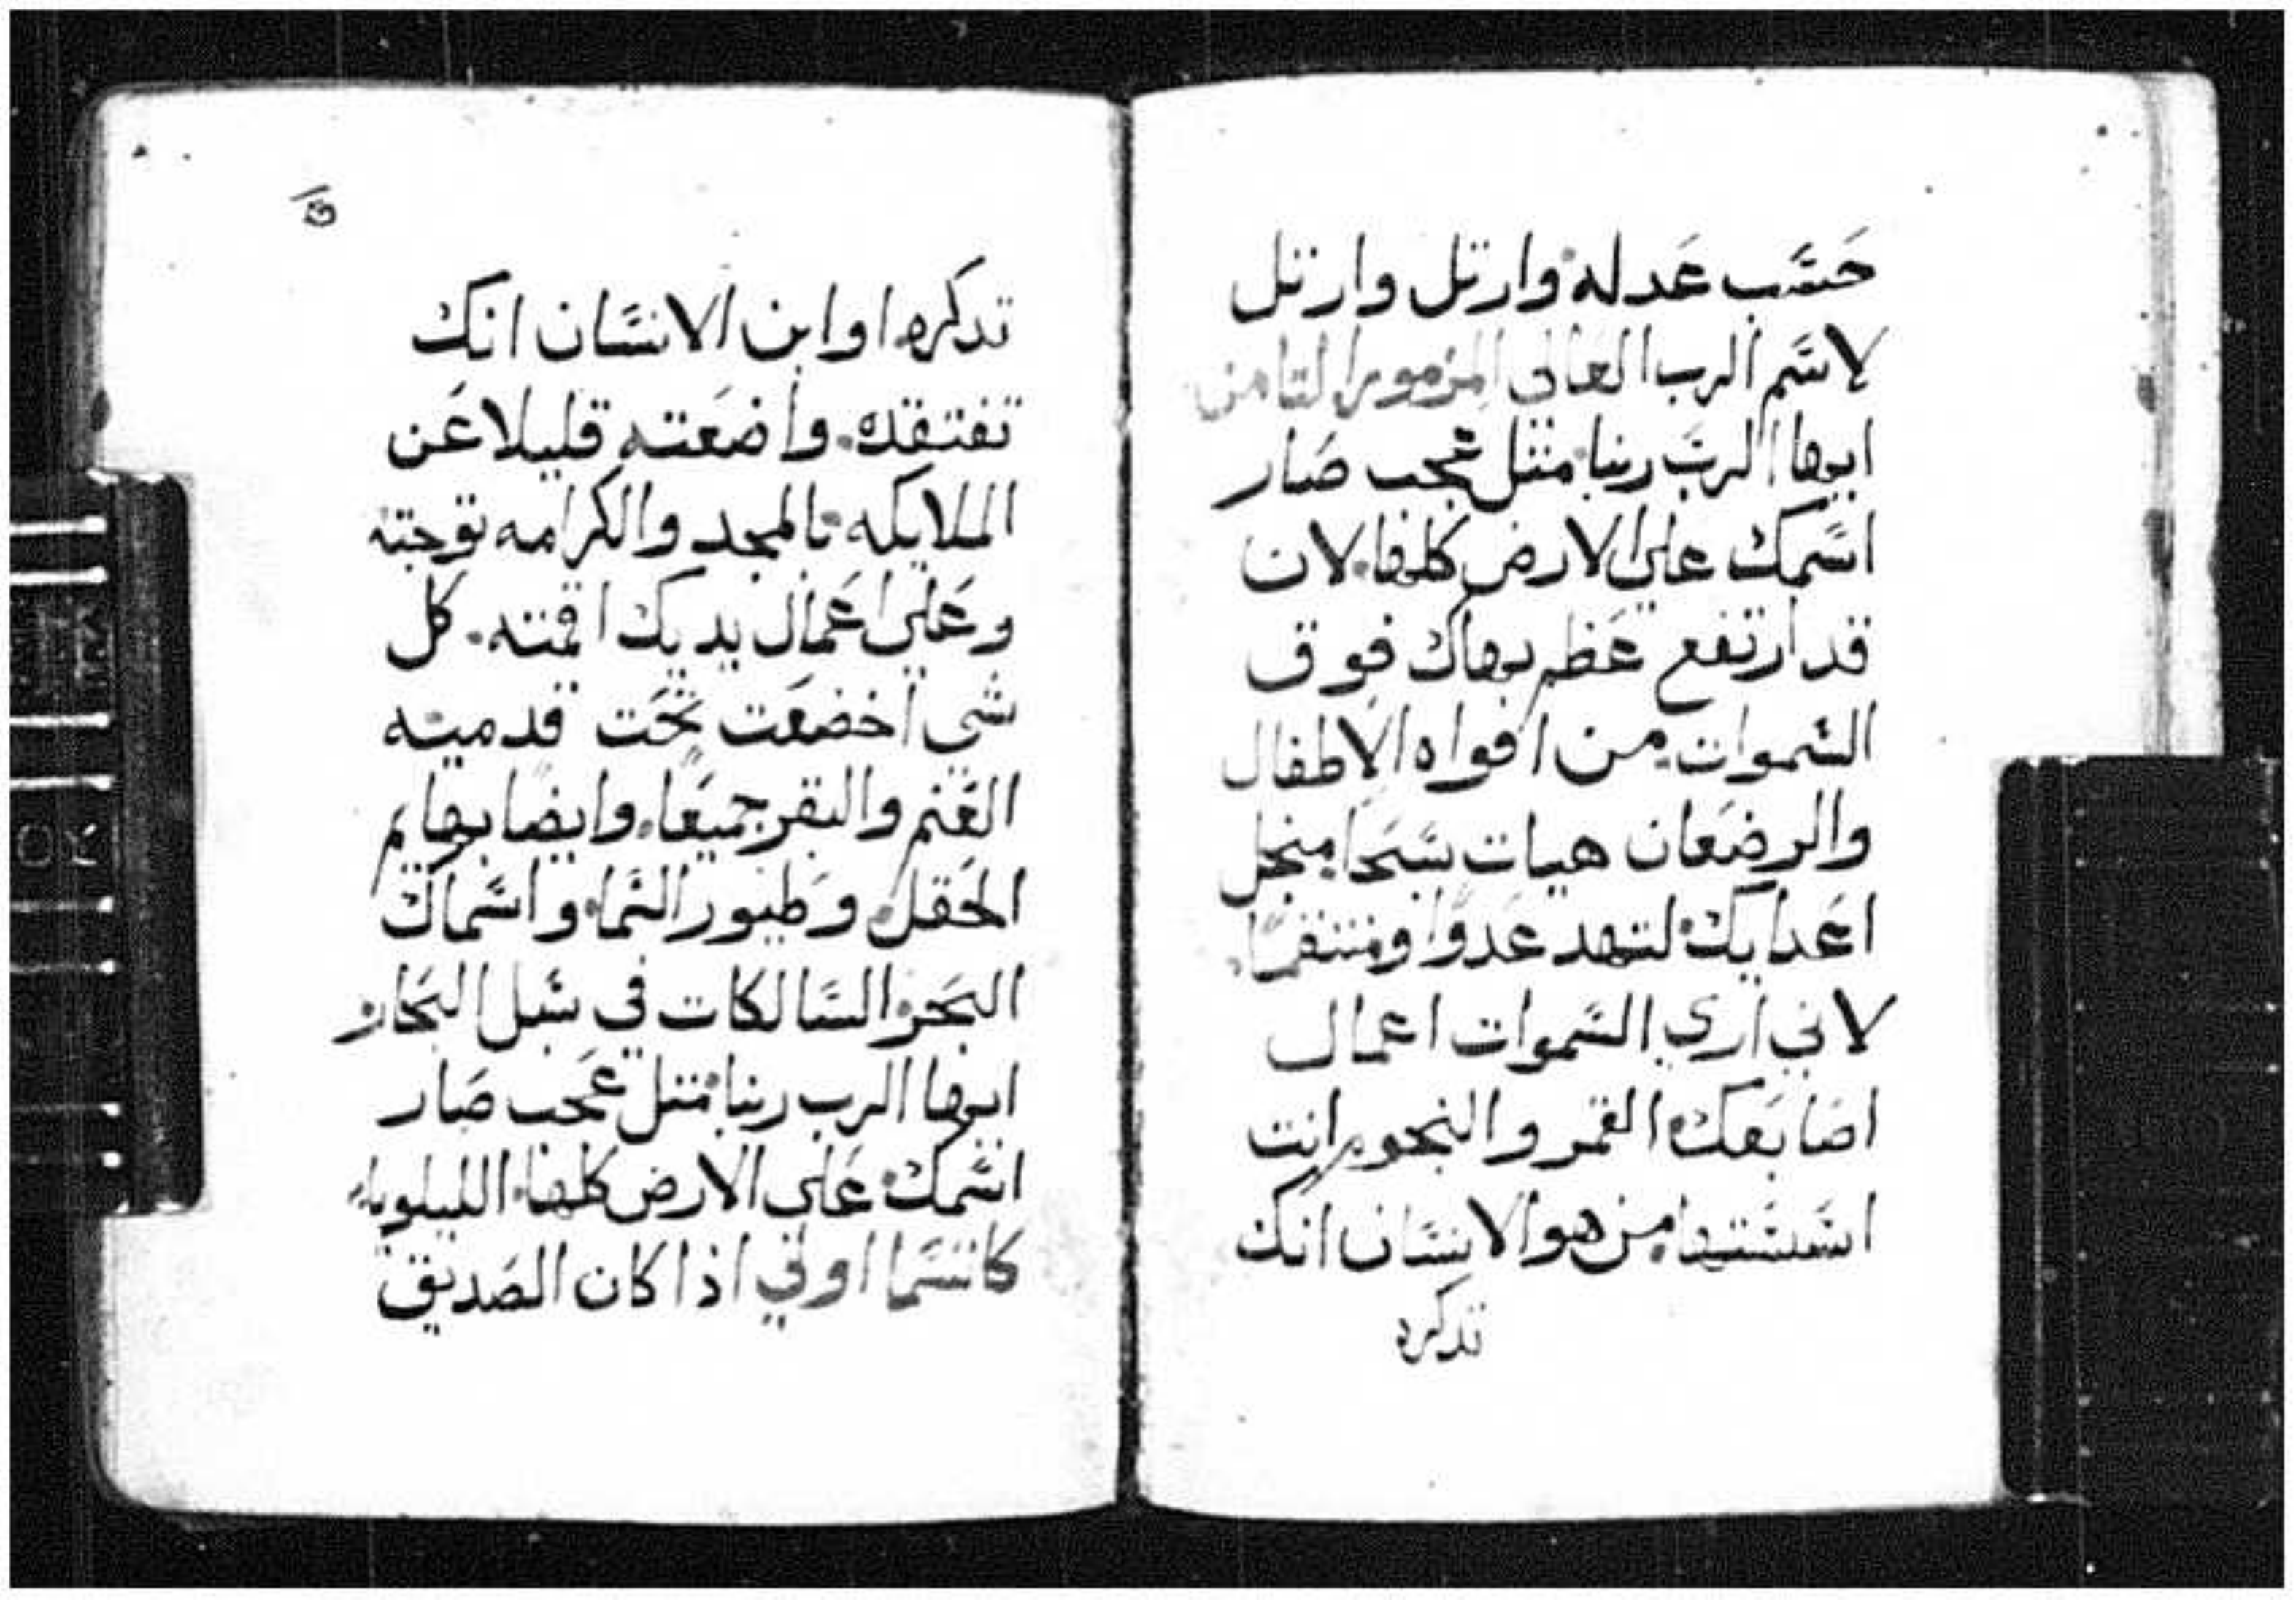 حسب عدله وارتل وارتل
لاسم الرب العالي المزمور الثامن
ايها الرب ربنا مثل عجب صار
اسمك علي الارض كلها لان
قد ارتفع عظم بهاك فوق
السموات من افواه الاطفال
والرضعان هيات سبحا منجل
اعدايك لتهد عدوا ومنتقما
لاني اري السموات اعمال
اصابعك القمر والنجوم انت
اسستها من هو الانسان انك
تدكره
تدكره او ابن الانسان انك
تفتقده. واضعته قليلا عن
الملايكه بالمجد والكرامه توجته
وعلي اعمال يديك اقمته. كل
شي اخضعت تحت قدميه
الغنم والبقر جميعا. وايضا بهايم
الحقل وطيور السما واسماك
البحر السالكات في سبل البحار
ايها الرب ربنا مثل عجب صار
اسمك علي الارض كلها الليلويا
كاتسما اولي اذا كان الصديق